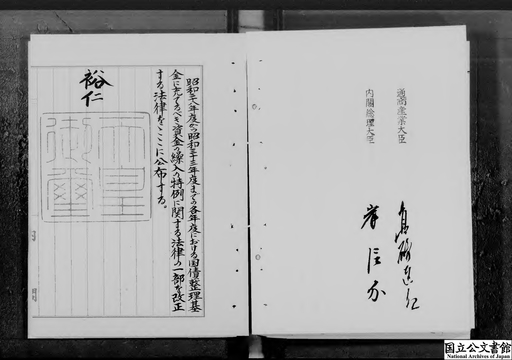 通商産業大臣
内閣総理大臣
岸信介
昭和二十八年度から昭和三十三年度までの各年度における国債整理基
金に充てるべき資金の繰入の特例に関する法律の一部を改正
する法律をここに公布する。
裕仁
天皇
御璽
国立公文書館
National Archives of Japan